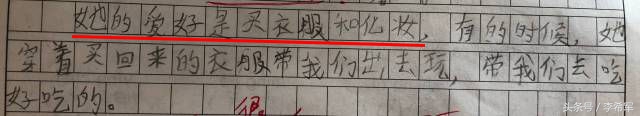 她的爱好是买衣服和化妆，有的时候，她
穿着买回来的衣服带我们出去玩，带我们去吃
好吃的。
很
头条号 / 李希军